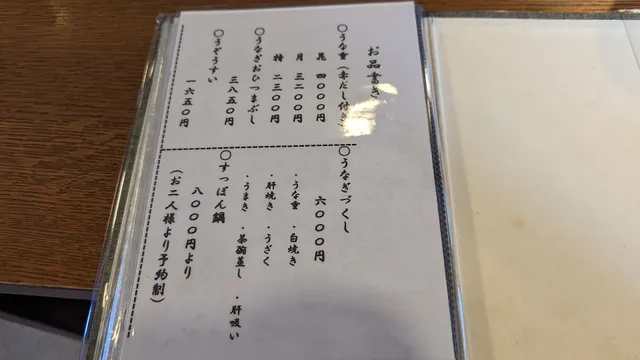 お品書き
〇うな重(赤だし付き)
花 四〇〇〇円
月 三二〇〇円
特 二三〇〇円
〇うなぎおひつまぶし
三八五〇円
〇うぞうすい
一六五〇円
〇うなぎづくし
六〇〇〇円
・うな重 ・白焼き
・肝焼き ・うざく
・うまき ・茶碗蒸し ・肝吸い
〇すっぽん鍋
八〇〇〇円より
(お二人様より予約制)